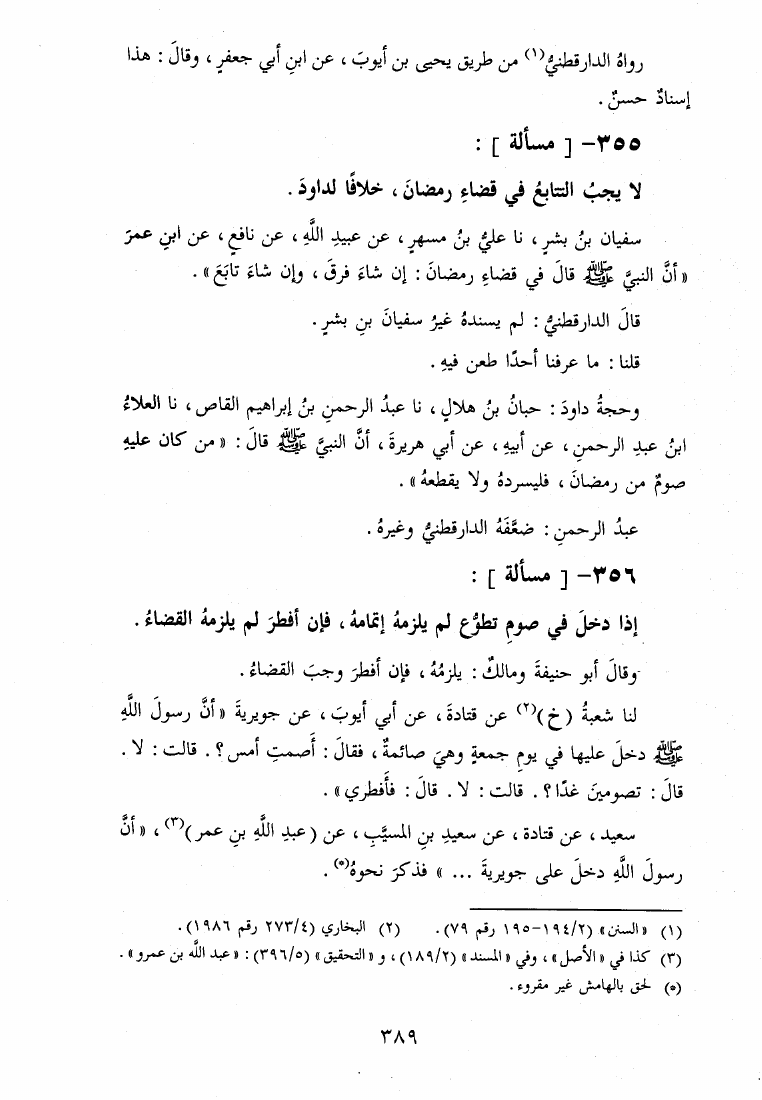 رواهُ الدارقطنيُّ(١) من طريق يحيى بن أيوبَ ، عن ابنِ أبي جعفرٍ ، وقالَ : هذا
إسنادٌ حسنٌ .
٣٥٥- [ مسألة ] :
لا يجبُ التتابعُ في قضاءِ رمضانَ ، خلافًا لداودَ .
سفيان بنُ بشرٍ ، نا عليُّ بنُ مسهرٍ ، عن عبيدِ اللَّهِ ، عن نافعٍ ، عن ابنِ عمرَ
« أنَّ النبيَّ ﷺ قالَ في قضاءِ رمضانَ : إن شاءَ فرقَ ، وإن شاءَ تابَعَ » .
قالَ الدارقطنيُّ : لم يسندهُ غيرُ سفيانَ بنِ بشرٍ .
قلنا : ما عرفنا أحدًا طعن فيهِ .
وحجةُ داودَ : حبانُ بنُ هلالٍ ، نا عبدُ الرحمنِ بنُ إبراهيم القاص ، نا العلاءُ
ابنُ عبدِ الرحمنِ ، عن أبيهِ ، عن أبي هريرةَ ، أنَّ النبيَّ ﷺ قالَ : « من كان عليهِ
صومٌ من رمضانَ ، فليسردهُ ولا يقطعهُ » .
عبدُ الرحمنِ : ضعَّفَهُ الدارقطنيُّ وغيرهُ .
٣٥٦- [ مسألة ] :
إذا دخلَ في صومِ تطوُّعٍ لم يلزمهُ إتمامهُ ، فإن أفطرَ لم يلزمهُ القضاءُ .
وقالَ أبو حنيفةَ ومالكٌ : يلزمُهُ ، فإن أفطرَ وجبَ القضاءُ .
لنا شعبةُ (خ)(٢) عن قتادةَ ، عن أبي أيوبَ ، عن جويريةَ « أنَّ رسولَ اللَّهِ
ﷺ دخلَ عليها في يومِ جمعةٍ وهيَ صائمةٌ ، فقالَ : أَصمتِ أمس ؟ . قالت : لا .
قالَ : تصومينَ غدًا ؟ . قالت : لا . قالَ : فأَفطري » .
سعيد ، عن قتادة ، عن سعيدِ بنِ المسيَّبِ ، عن (عبدِ اللَّهِ بنِ عمر)(٣) ، « أنَّ
رسولَ اللَّهِ دخلَ على جويريةَ ... » فذكرَ نحوهُ(*) .
(١) «السنن» (١٩٤/٢-١٩٥ رقم ٧٩). (٢) البخاري (٢٧٣/٤ رقم ١٩٨٦).
(٣) كذا في «الأصل» ، وفي «المسند» (١٨٩/٢) ، و«التحقيق» (٣٩٦/٥) : «عبد الله بن عمرو» .
(*) لحق بالهامش غير مقروء .
٣٨٩